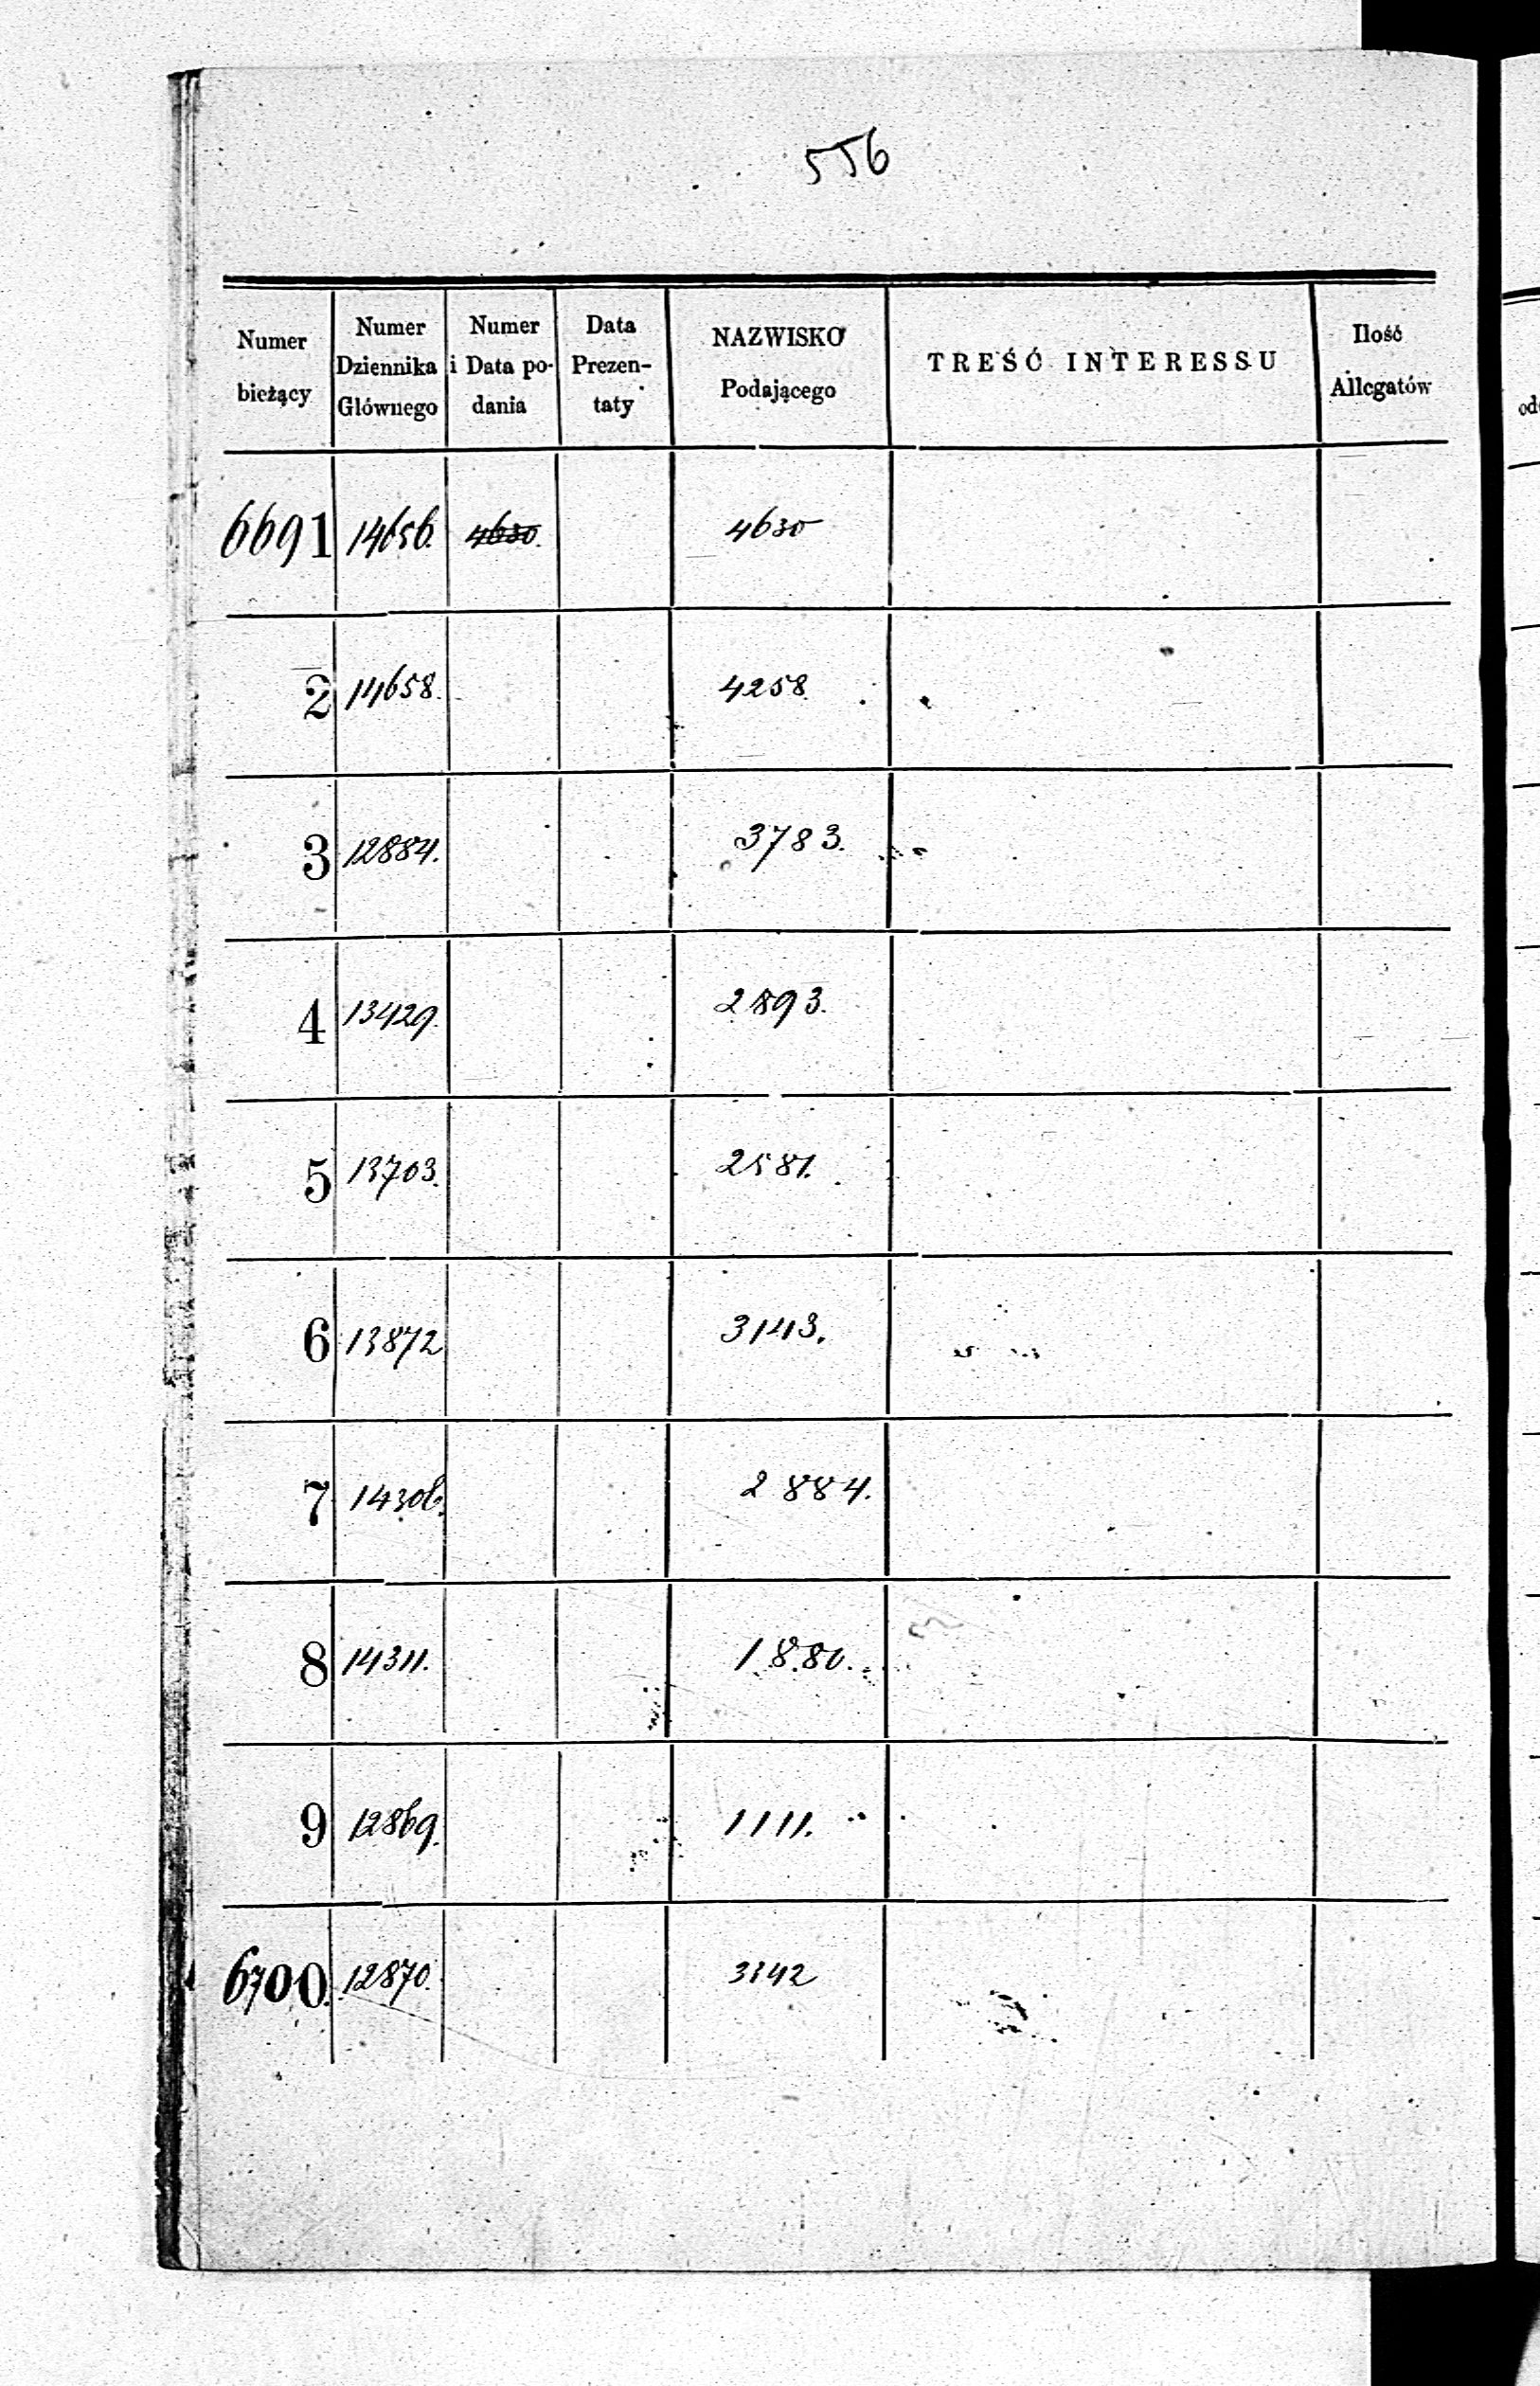 556
Numer bieżący | Numer Dziennika Głównego | Numer i Data podania | Data Prezentaty | NAZWISKO Podającego | TREŚĆ INTERESSU | Ilość Allegatów
6691 | 14656. | 4630. | | 4630
2 | 14658. | | | 4258.
3 | 12884. | | | 3783.
4 | 13429. | | | 2893.
5 | 13703. | | | 2581.
6 | 13872 | | | 3143.
7 | 14306. | | | 2884.
8 | 14311. | | | 1880.
9 | 12869. | | | 1111.
6700. | 12870. | | | 3342